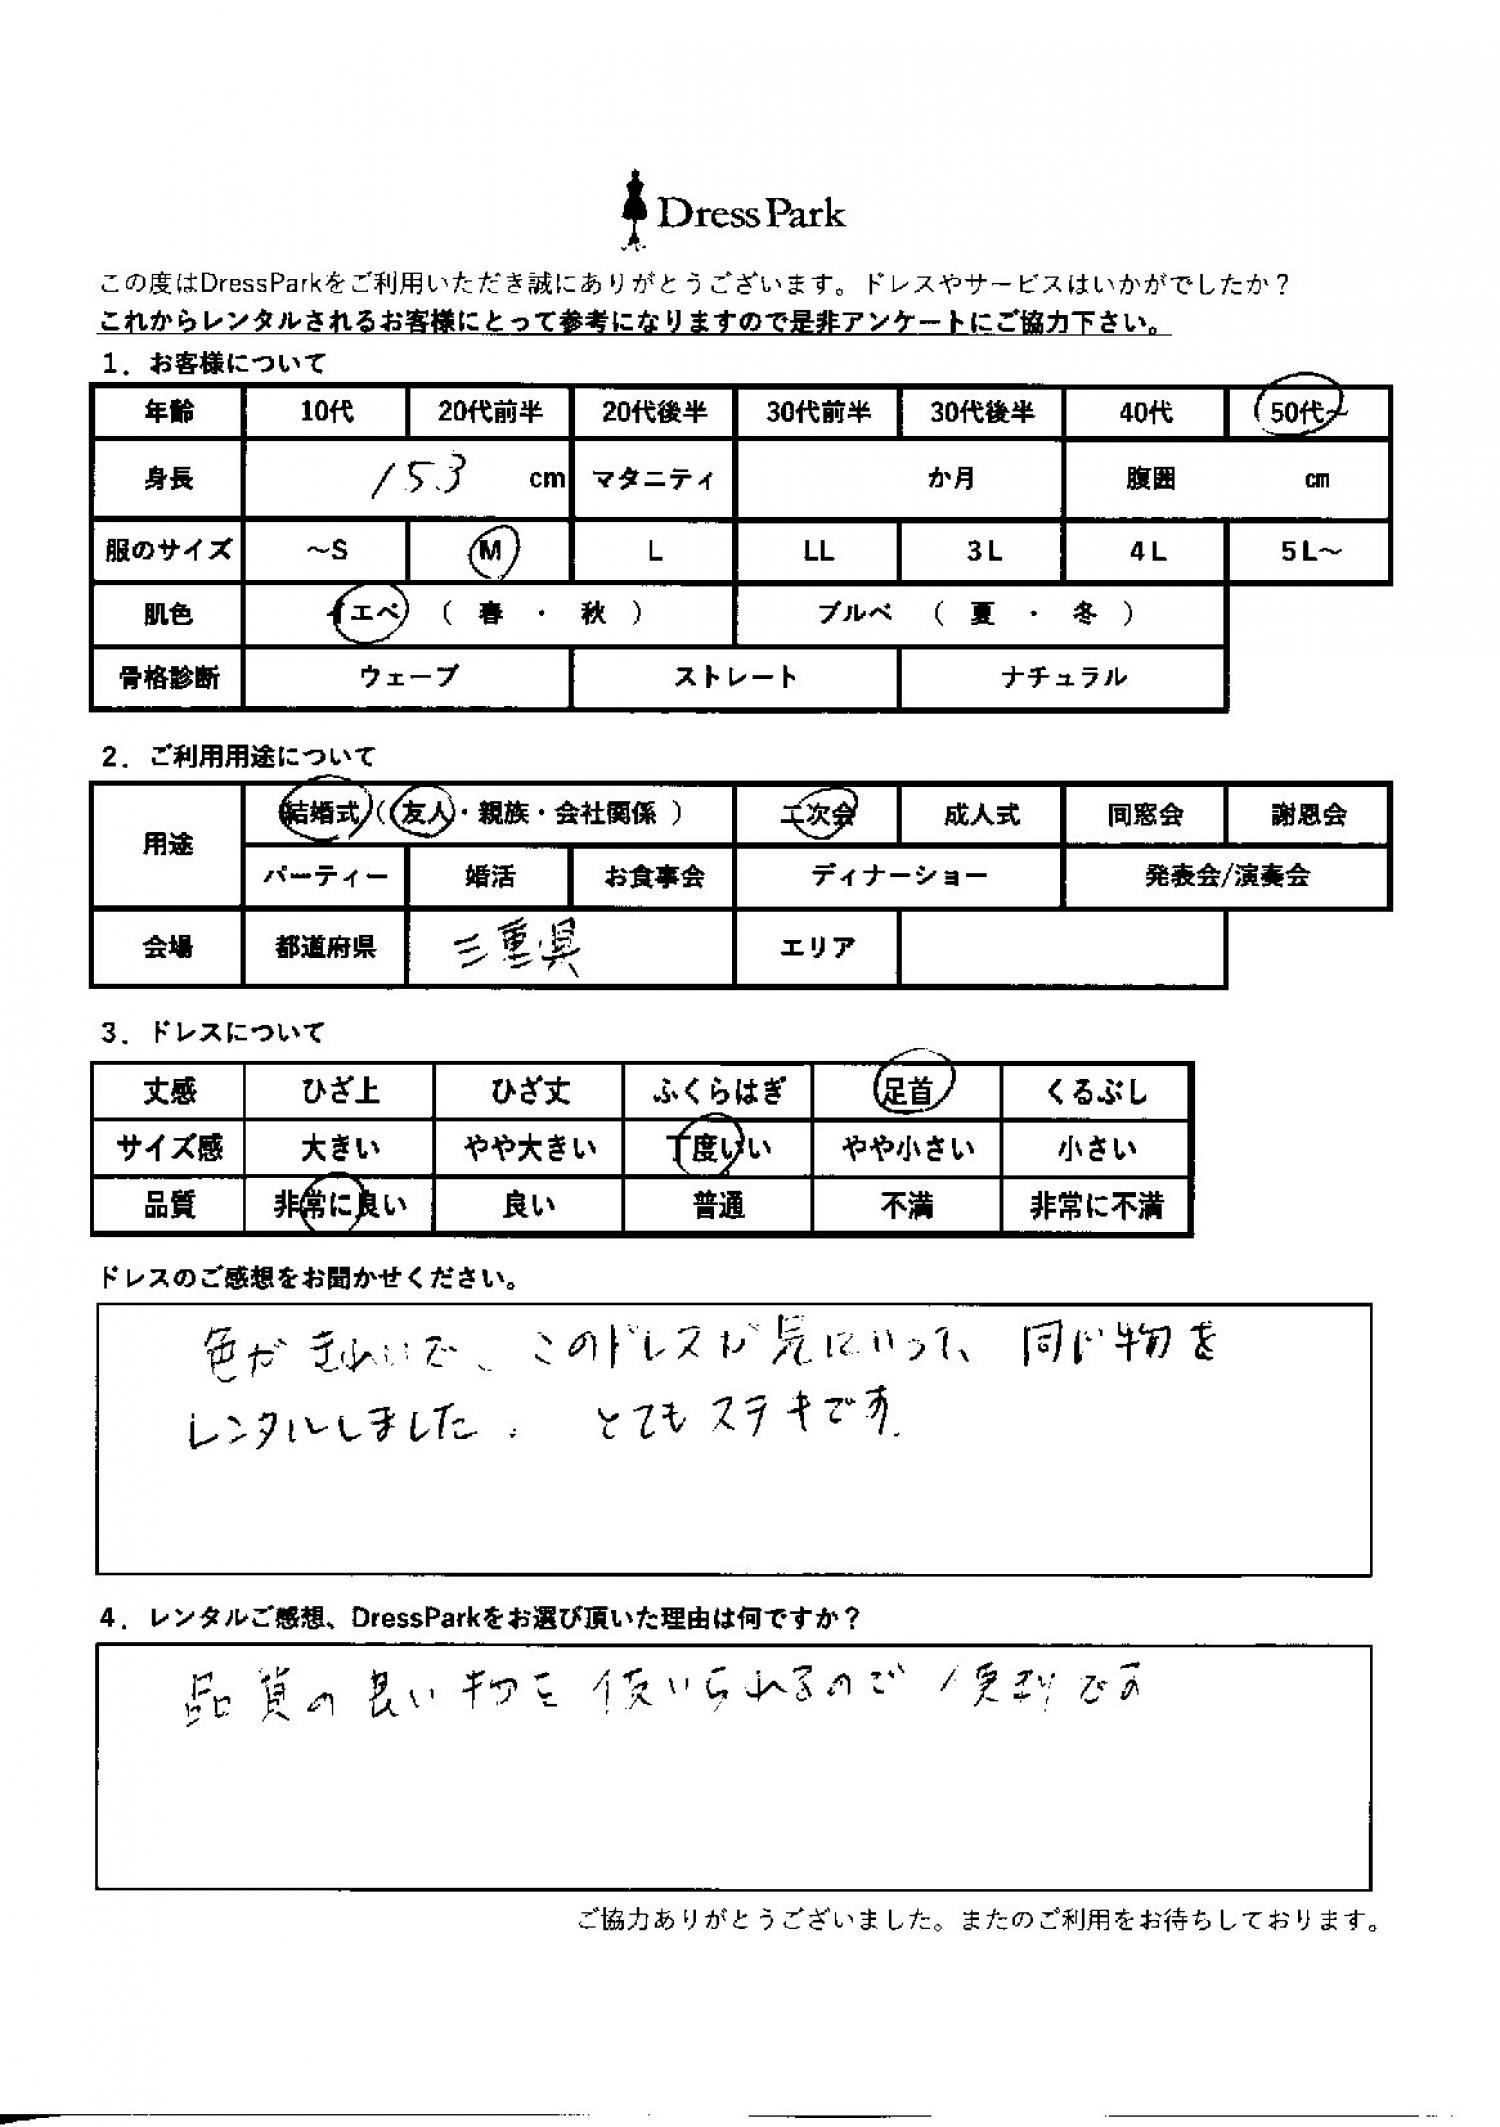 Dress Park
この度はDressParkをご利用いただき誠にありがとうございます。ドレスやサービスはいかがでしたか？
これからレンタルされるお客様にとって参考になりますので是非アンケートにご協力下さい。
1．お客様について
年齢 10代 20代前半 20代後半 30代前半 30代後半 40代 50代～
身長 153 cm マタニティ か月 腹囲 cm
服のサイズ ～S M L LL 3L 4L 5L～
肌色 イエベ （ 春 ・ 秋 ） ブルベ （ 夏 ・ 冬 ）
骨格診断 ウェーブ ストレート ナチュラル
2．ご利用用途について
用途 結婚式（ 友人・親族・会社関係 ） 二次会 成人式 同窓会 謝恩会
パーティー 婚活 お食事会 ディナーショー 発表会/演奏会
会場 都道府県 三重県 エリア
3．ドレスについて
丈感 ひざ上 ひざ丈 ふくらはぎ 足首 くるぶし
サイズ感 大きい やや大きい 丁度いい やや小さい 小さい
品質 非常に良い 良い 普通 不満 非常に不満
ドレスのご感想をお聞かせください。
色がきれいで、このドレスが 気にいって、同じ物を
レンタルしました。 とてもステキです。
4．レンタルご感想、DressParkをお選び頂いた理由は何ですか？
品質の良い物を使いられるので便利です
ご協力ありがとうございました。またのご利用をお待ちしております。